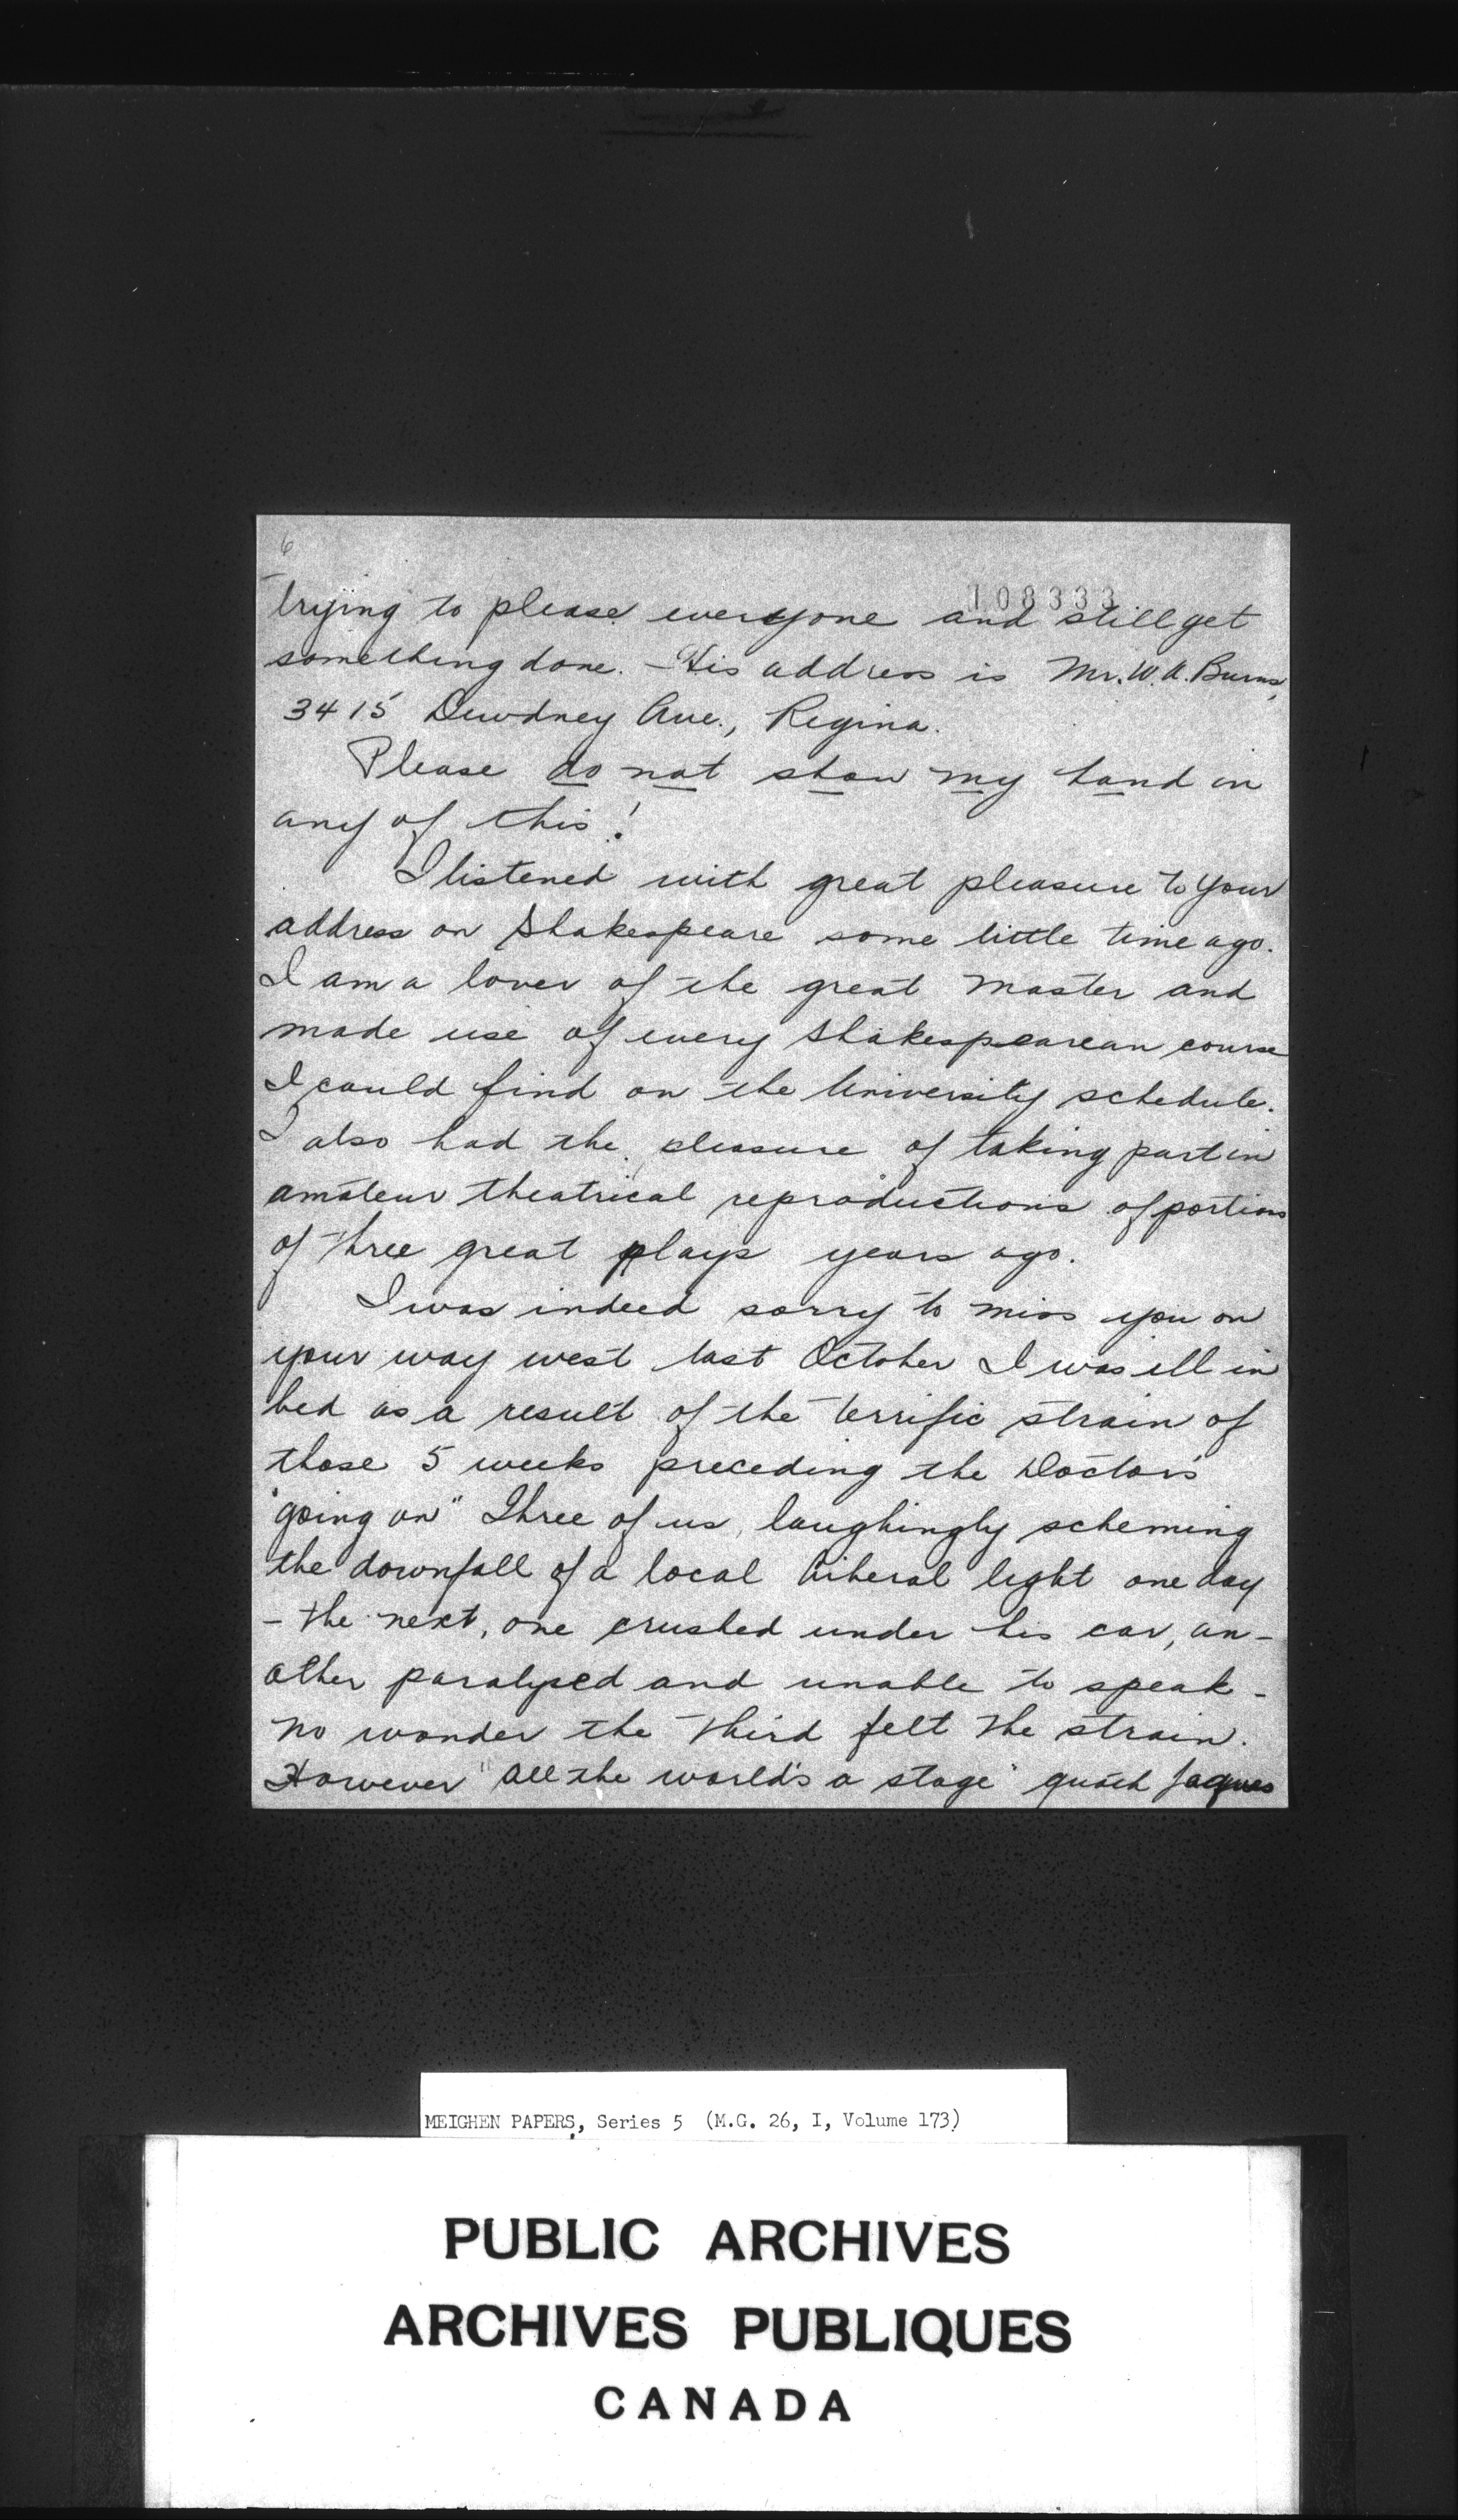 6
108333
trying to please everyone and still get
something done. - His address is Mr. W. A. Burns,
3415 Dewdney Ave., Regina.
Please do not show my hand in
any of this!
I listened with great pleasure to your
address on Shakespeare some little time ago.
I am a lover of the great master and
made use of every Shakespearean course
I could find on the University schedule.
I also had the pleasure of taking part in
amateur theatrical reproductions of portions
of three great plays years ago.
I was indeed sorry to miss you on
your way west last October I was ill in
bed as a result of the terrific strain of
those 5 weeks preceding the Doctor's
"going on" Three of us, laughingly scheming
the downfall of a local Liberal light one day
- the next, one crushed under his car, an-
other paralysed and unable to speak -
no wonder the third felt the strain.
However "All the world's a stage" quoth Jaques
MEIGHEN PAPERS, Series 5 (M.G. 26, I, Volume 173)
PUBLIC ARCHIVES
ARCHIVES PUBLIQUES
CANADA